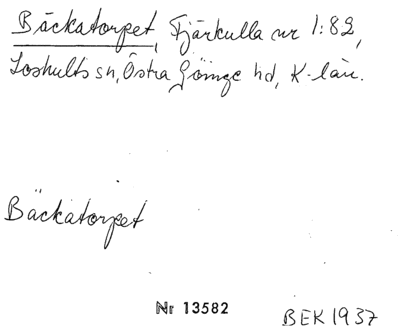 Bäckatorpet, Fjärkulla nr 1:82,
Loshults sn, Östra Göinge hd, K-län.
Bäckatorpet
Nr 13582
BEK 1937